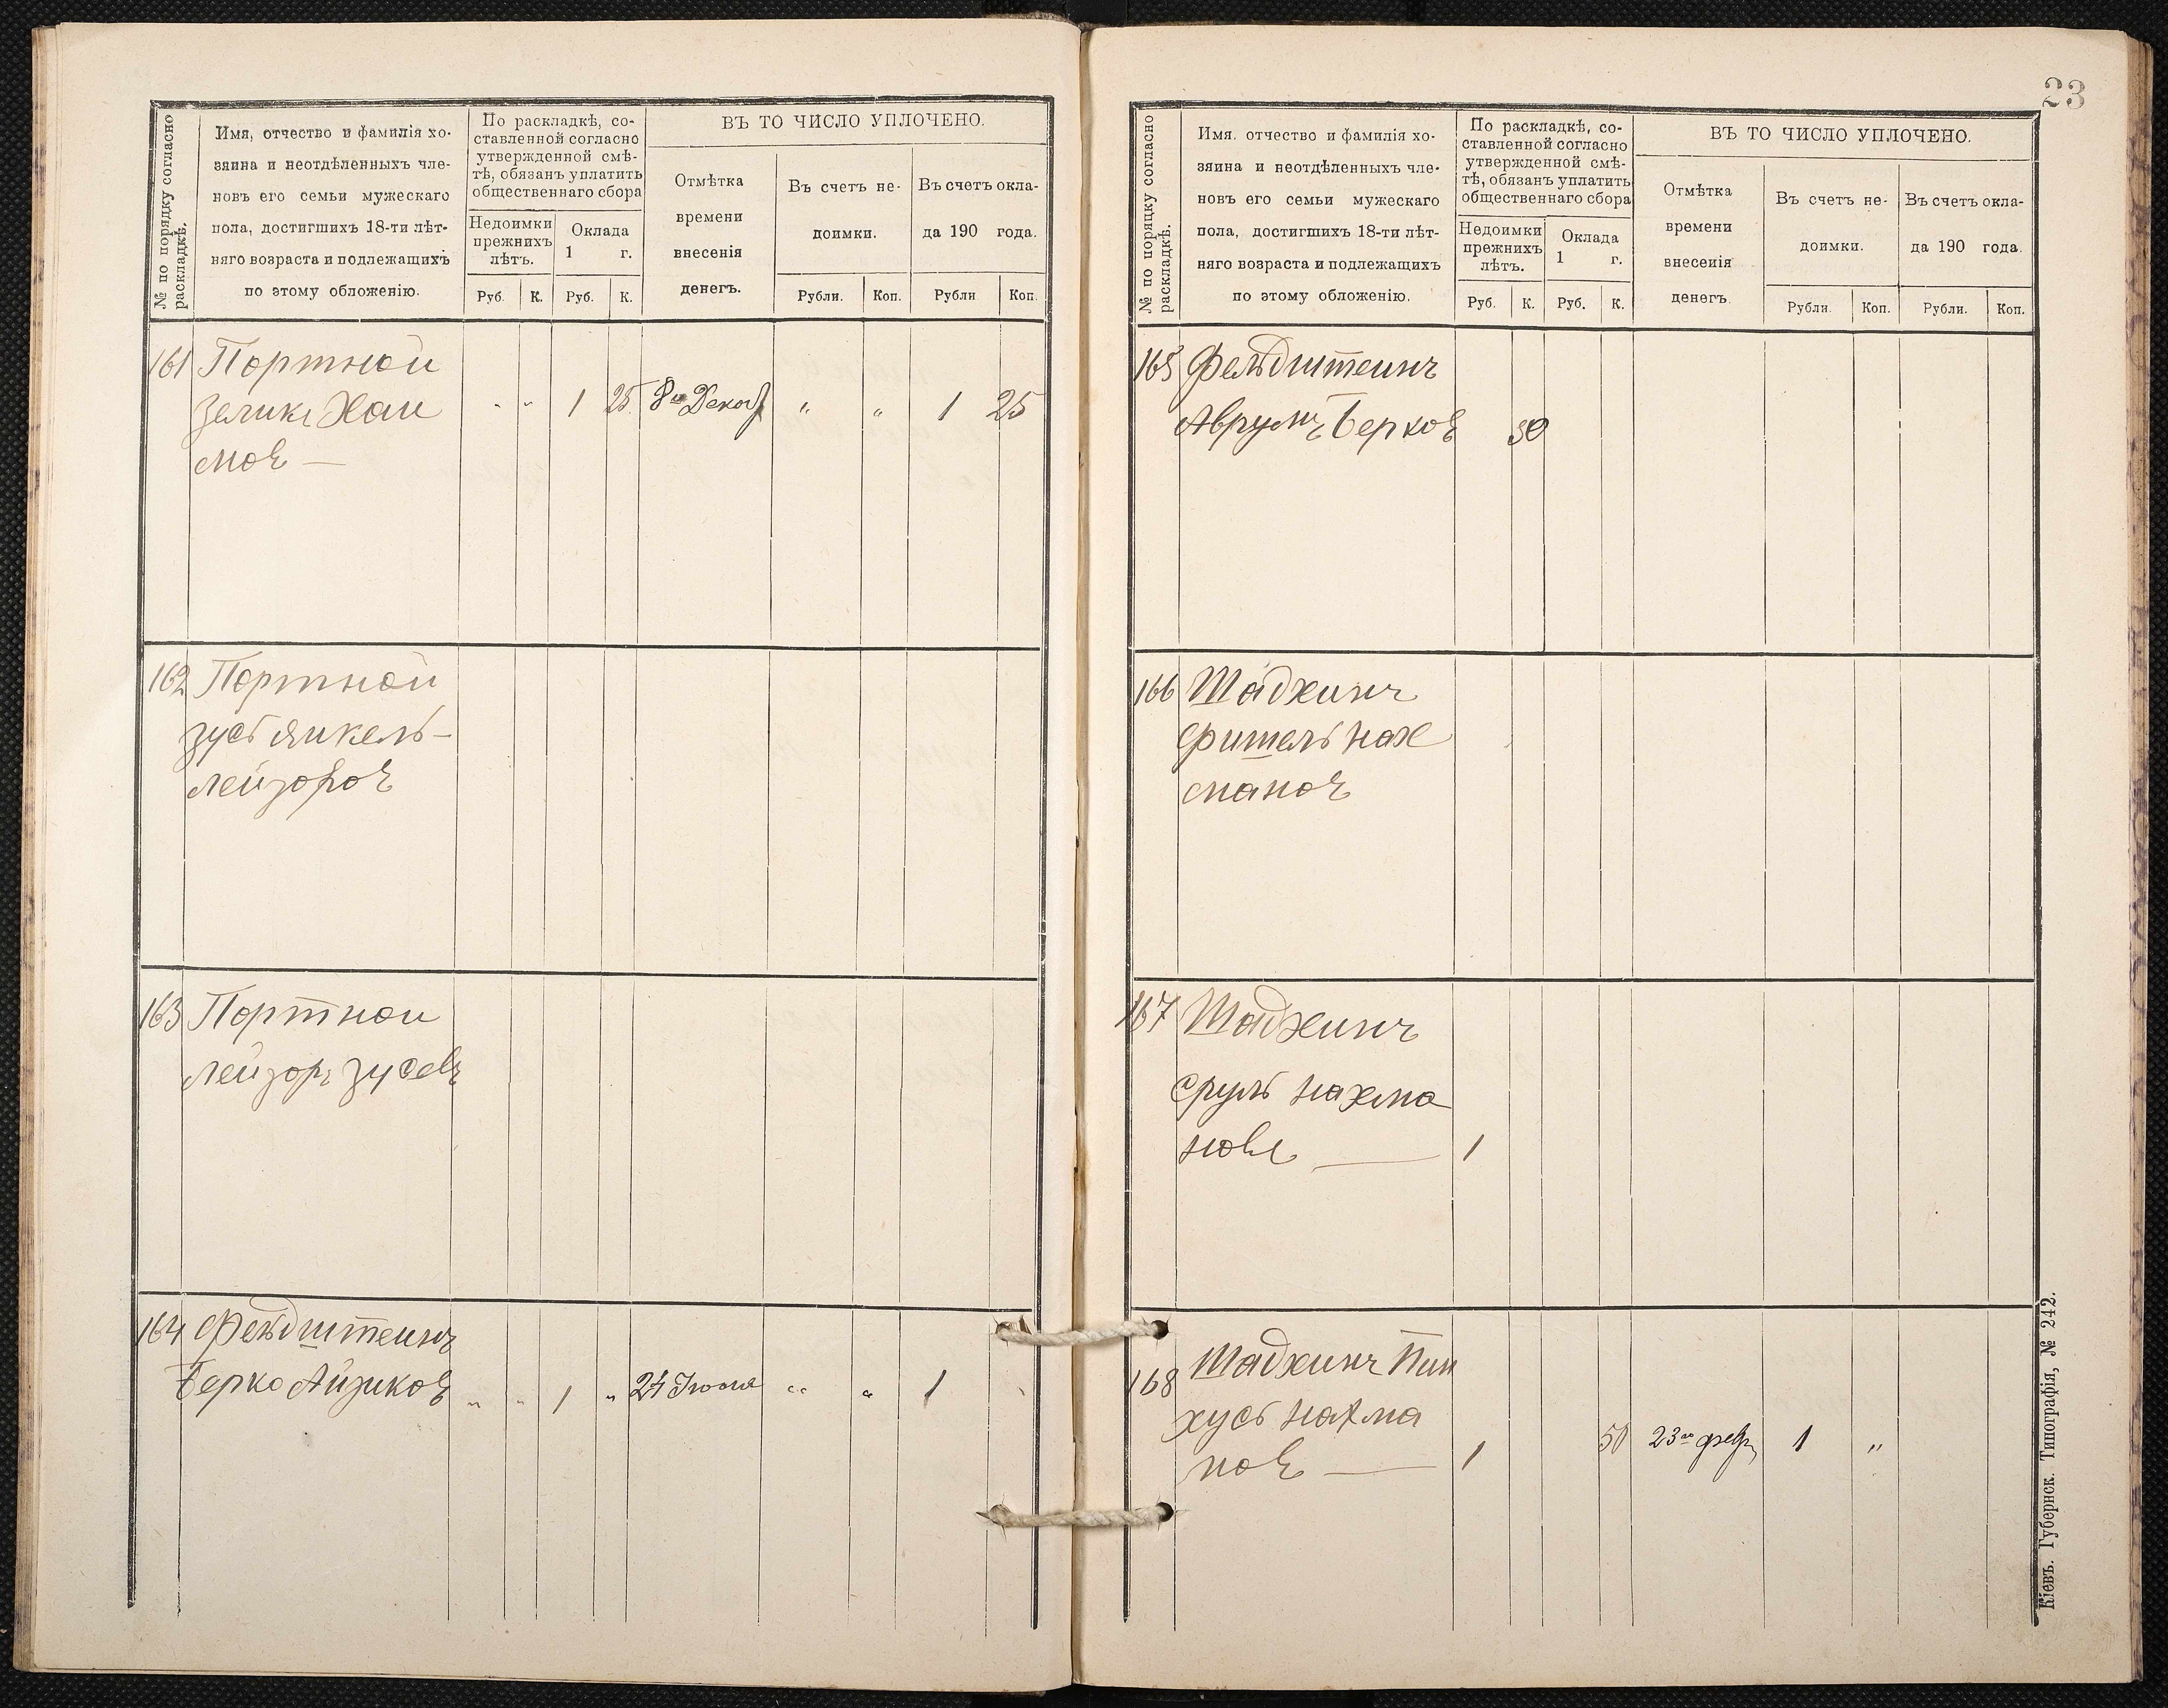 № по порядку согласно
раскладкѣ.
Имя, отчество и фамилія хо-
зяина и неотдѣленныхъ чле-
новъ его семьи мужескаго
пола, достигшихъ 18-ти лѣт-
няго возраста и подлежащихъ
по этому обложенію.
По раскладкѣ, со-
ставленной согласно
утвержденной смѣ-
тѣ, обязанъ уплатить
общественнаго сбора
Недоимки
прежнихъ
лѣтъ.
Оклада
1 г.
Руб. К. Руб. К.
ВЪ ТО ЧИСЛО УПЛОЧЕНО.
Отмѣтка
времени
внесенія
денегъ.
Въ счетъ не-
доимки.
Въ счетъ окла-
да 190 года.
Рубли. Коп. Рубли Коп.
161 Портной
Зеликъ Хаи " " 1 25 8го Декаб " " 1 25
мов —
162 Портной
Зусь Янкель-
Лейзоров
163 Портнои
Лейзоръ Зусевъ
164 Фельдштеинъ
Берко Айзиков " " 1 " 24 Июня " " 1
23
№ по порядку согласно
раскладкѣ.
Имя. отчество и фамилія хо-
зяина и неотдѣленныхъ чле-
новъ его семьи мужескаго
пола, достигшихъ 18-ти лѣт-
няго возраста и подлежащихъ
по этому обложенію.
По раскладкѣ, со-
ставленной согласно
утвержденной смѣ-
тѣ, обязанъ уплатить
общественнаго сбора
Недоимки
прежнихъ
лѣтъ.
Оклада
1 г.
Руб. К. Руб. К.
ВЪ ТО ЧИСЛО УПЛОЧЕНО.
Отмѣтка
времени
внесенія
денегъ.
Въ счетъ не-
доимки.
Въ счетъ окла-
да 190 года.
Рубли. Коп. Рубли. Коп.
165 Фельдштеинъ
Аврумъ Берков 50
166 Шадхинъ
Фишель Нах
манов
167 Шадхинъ
Сруль Нахма
новъ — 1
168 Шадхинъ Пин
хусь Нахма
нов — 1 50 23го февр 1 "
Кіевъ. Губернск. Типографія, № 242.